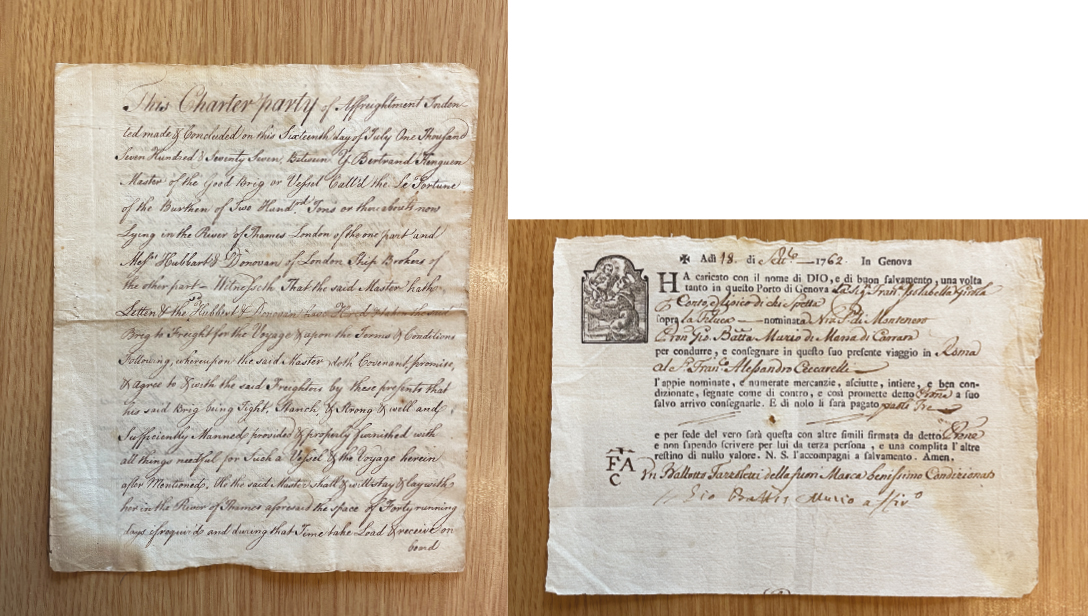 This Charter party of Affreightment Inden-
ted made & Concluded on this Sixteenth day of July One Thousand
Seven Hundred & Seventy Seven, Between Bertrand
Master of the Good Brig or Vessel Call'd the Le Fortune
of the Burthen of Two Hundrd. Tons or thereabouts now
Lying in the River of Thames London of the one part and
Messrs Hubbart & Donovan of London Ship Brokers of
the other part – Witnesseth That the said Master hath
Letten & the sd Hubbart & Donovan have
Brig to Freight for the Voyage & upon the Terms & Conditions
Following, whereupon the said Master doth Covenant, promise,
& agree to & with the said Freighters by these presents that
his said Brig being Tight, Stanch, & Strong & well and
Sufficiently Manned, provided & properly furnished with
all things needful for Such a Vessel & the Voyage herein
after Mentioned. He the said Master shall & will stay & lay with
her in the River of Thames aforesaid the space of Forty running
days if required and during that Time take Load & receive on
board
✠ Adì 18. di 1762. In Genova
HA caricato con il nome di DIO, e di buon salvamento, una volta
tanto in questo Porto di Genova
Conto, di chi Spetta
sopra la nominata di Montenero
Pron Gio. Batta Muzio di Massa di Carrara
per condurre, e consegnare in questo suo presente viaggio in Roma
al Sr. Franco. Alessandro Ceccarelli
l'appie nominate, e numerate mercanzie, asciutte, intiere, e ben con-
dizionate, segnate come di contro, e così promette detto Prone a suo
salvo arrivo consegnarle. E di nolo li sarà pagato
e per fede del vero sarà questa con altre simili firmata da detto Prone
e non sapendo scrivere per lui da terza persona, e una complita l'altre
restino di nullo valore. N. S. l'accompagni a salvamento. Amen.
FA
C
Un Ballotto fuori Marca benissimo Condizionato
Gio Batta Muzio